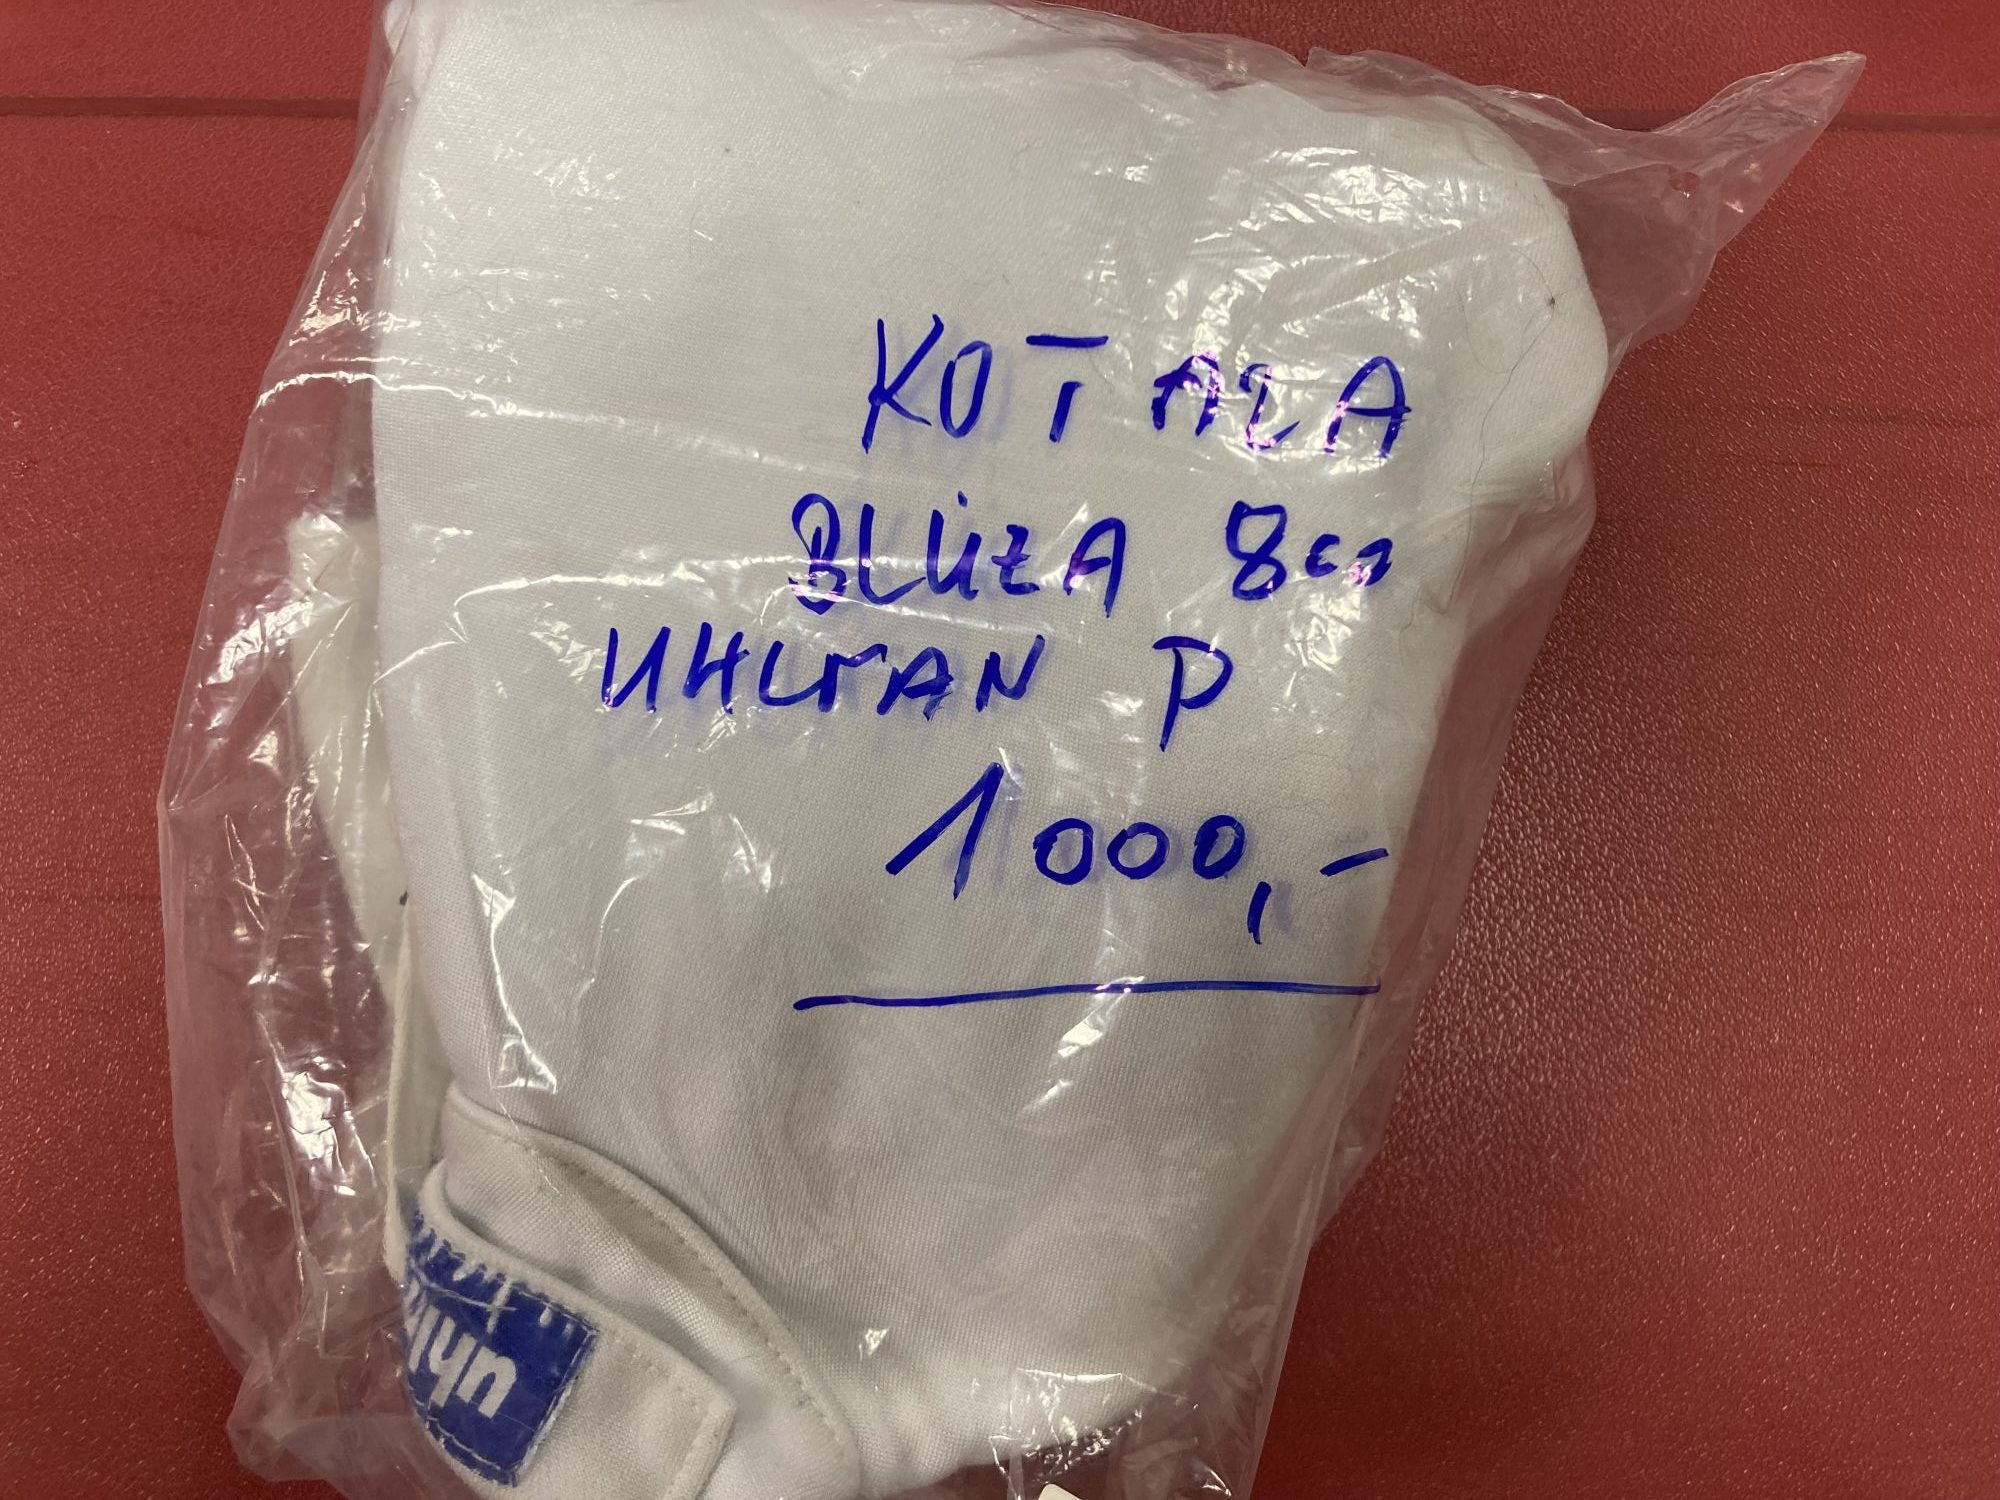 KOTALA
BLŮZA 800
UHLMAN P
1000,-
uhl